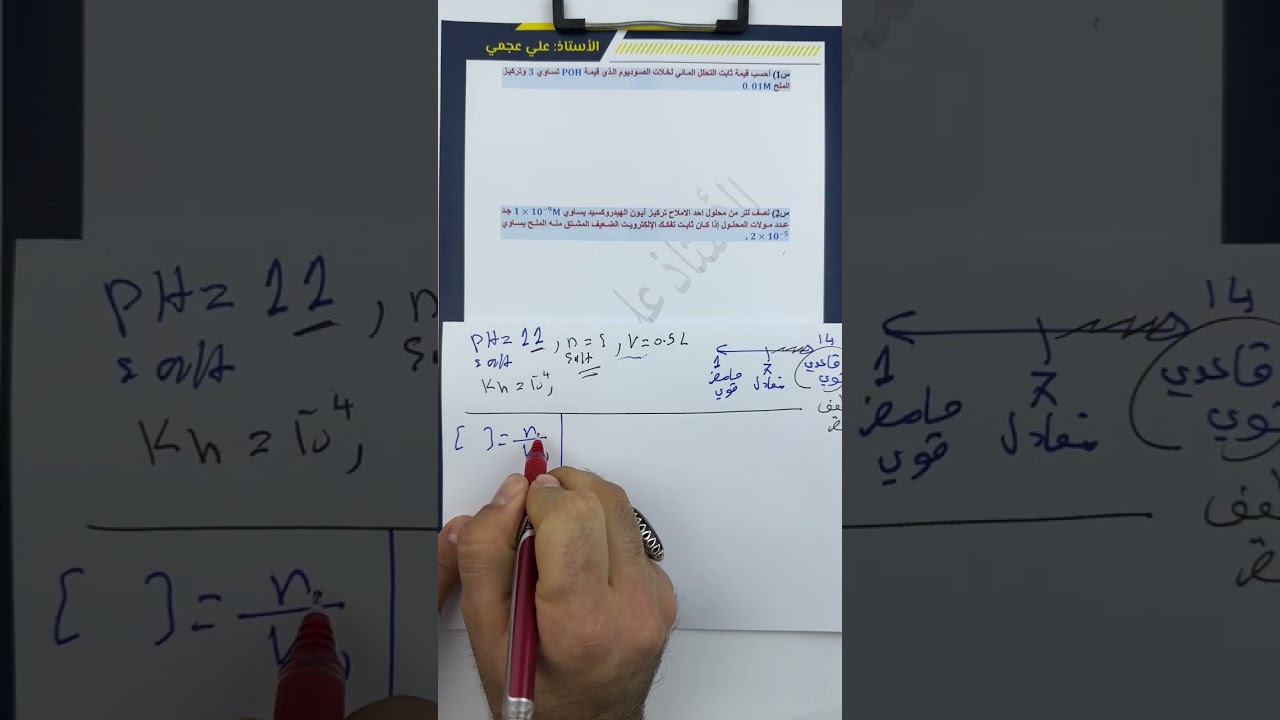 الأستاذ: علي عجمي
س1) احسب قيمة ثابت التحلل المائي لخلات الصوديوم الذي قيمة POH تساوي 3 وتركيز
الملح 0.01M
س2) نصف لتر من محلول احد الاملاح تركيز أيون الهيدروكسيد يساوي 1 × 10⁻⁹M جد
عدد مولات المحلول إذا كان ثابت تفكك الإلكتروليت الضعيف المشتق منه الملح يساوي
2 × 10⁻⁵ .
الأستاذ
pH = 11 , n = ؟ , V = 0.5 L
salt salt
Kh = 10⁻⁴,
14
1 7
قاعدي
قوي
حامض
قوي
متعادل
[ ] = n
V